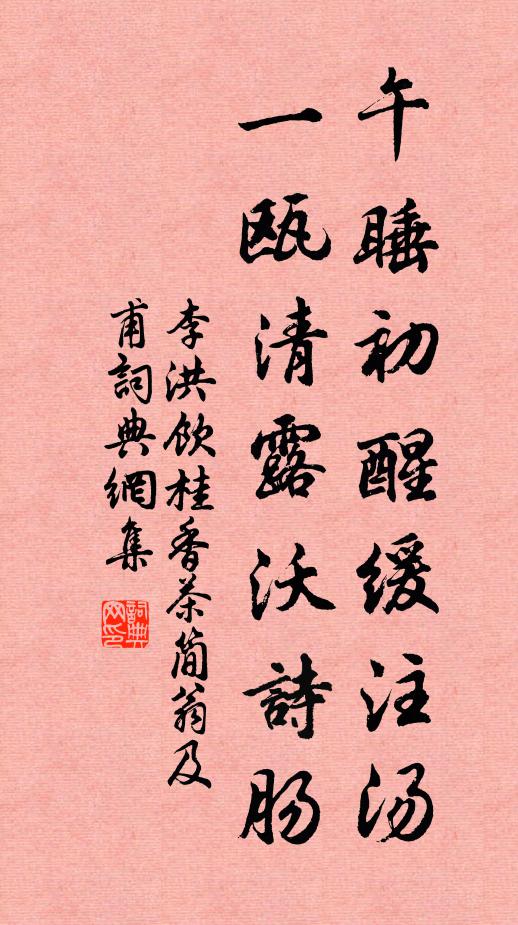 午睡初醒缓注汤
一瓯清露沃詩肠
李洪饮桂香茶简翁及
甫詞典網集
詞典网印